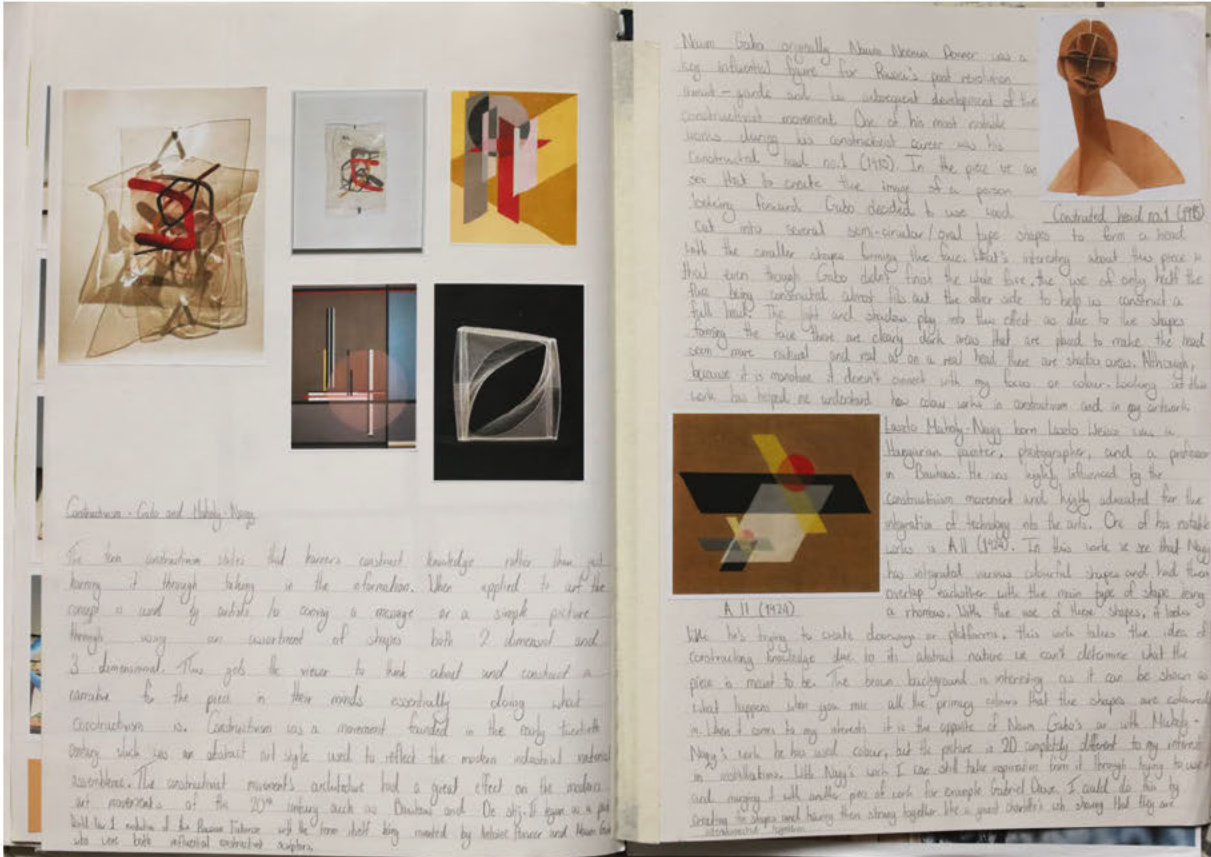 Constructivism - Gabo and Moholy-Nagy
The term constructivism states that learners construct knowledge rather than just
learning it through taking in the information. When applied to art the
concept is used by artists to convey a message or a simple picture
through using an assortment of shapes both 2 dimensional and
3 dimensional. This gets the viewer to think about and construct a
narrative for the piece in their minds essentially doing what
constructivism is. Constructivism was a movement founded in the early twentieth
century which was an abstract art style used to reflect the modern industrial material
assemblance. The constructivist movement's architecture had a great effect on the modern
art movements of the 20th century such as Bauhaus and De stijl. It began as a post
world war 1 evolution of the Russian Futurism with the term itself being invented by Antoine Pevsner and Naum Gabo
who were both influential constructivist sculptors.
Naum Gabo originally Naum Neemia Pevsner was a
key influential figure for Russia's post revolution
avant-garde and the subsequent development of the
constructivist movement. One of his most notable
works during his constructivist career was his
constructed head no.1 (1915). In the piece we can
see that to create the image of a person
looking forwards Gabo decided to use wood
cut into several semi-circular/oval type shapes to form a head
with the smaller shapes forming the face. What's interesting about this piece is
that even though Gabo didn't finish the whole face, the use of only half the
face being constructed almost fills out the other side to help us construct a
full head. The light and shadow play into this effect as due to the shapes
forming the face there are clearly dark areas that are placed to make the head
seem more natural and real as on a real head there are shadow areas. Although,
because it is monotone it doesn't connect with my focus on colour. Looking at this
work has helped me understand how colour works in constructivism and in my artwork
Constructed head no.1 (1915)
Laszlo Moholy-Nagy born Laszlo Weisz was a
Hungarian painter, photographer, and a professor
in Bauhaus. He was highly influenced by the
constructivism movement and highly advocated for the
integration of technology into the arts. One of his notable
works is A II (1924). In this work we see that Nagy
has integrated various colourful shapes and had them
overlap eachother with the main type of shape being
a rhombus. With the use of these shapes, it looks
A II (1924)
like he's trying to create doorways or platforms, this work takes the idea of
constructing knowledge due to its abstract nature we can't determine what the
piece is meant to be. The brown background is interesting as it can be shown as
what happens when you mix all the primary colours that the shapes are coloured
in. When it comes to my interests it is the opposite of Naum Gabo's as with Moholy-
Nagy's work he has used colour, but the picture is 2D completely different to my interest
in installations. With Nagy's work I can still take inspiration from it through trying to use it
and merging it with another piece of work for example Gabriel Dawe. I could do this by
creating shapes and having them strung together like a giant web showing that they are
together